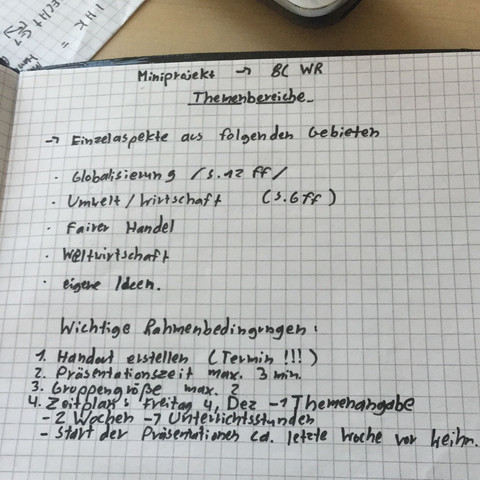 IHK
Miniprojekt → 8C WR
Themenbereiche
→ Einzelaspekte aus folgenden Gebieten
· Globalisierung /S.12 ff/
· Umwelt/Wirtschaft (S.6ff)
· Fairer Handel
· Weltwirtschaft
· eigene Ideen.
Wichtige Rahmenbedingungen:
1. Handout erstellen (Termin!!!)
2. Präsentationszeit max. 3 min.
3. Gruppengröße max. 2
4. Zeitplan: Freitag 4. Dez → Themenangabe
- 2 Wochen → Unterrichtsstunden
- Start der Präsentationen ca. letzte Woche vor Weihn.